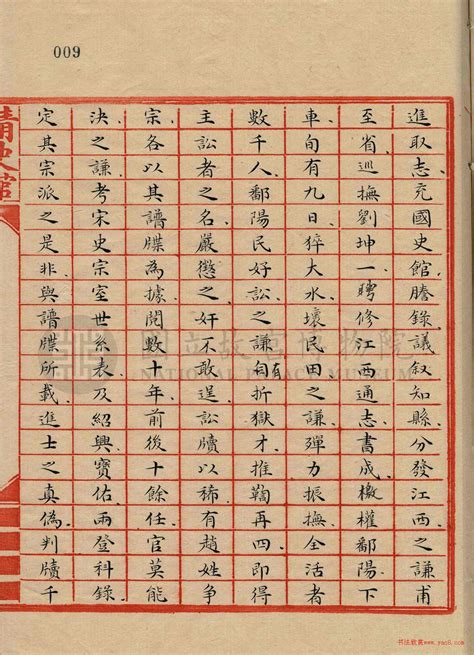 009
進取志充國史館謄錄議叙知縣分發江西之謙甫
至省巡撫劉坤一聘修江西通志書成檄權鄱陽下
車旬有九日猝大水壞民田之謙殫力振撫全活者
數千人鄱陽民好訟之謙自有折獄才推鞫再四即得
主訟者之名嚴懲之奸不敢逞訟牘以稀有趙姓爭
宗各以其譜牒為據閱數十年前後十餘任官莫能
決之謙考宋史宗室世系表及紹興寶佑兩登科錄
定其宗派之是非與譜牒所載進士之真偽判牘千
清史館
國立故宮博物院
NATIONAL PALACE MUSEUM
书法欣赏www.yac8.com